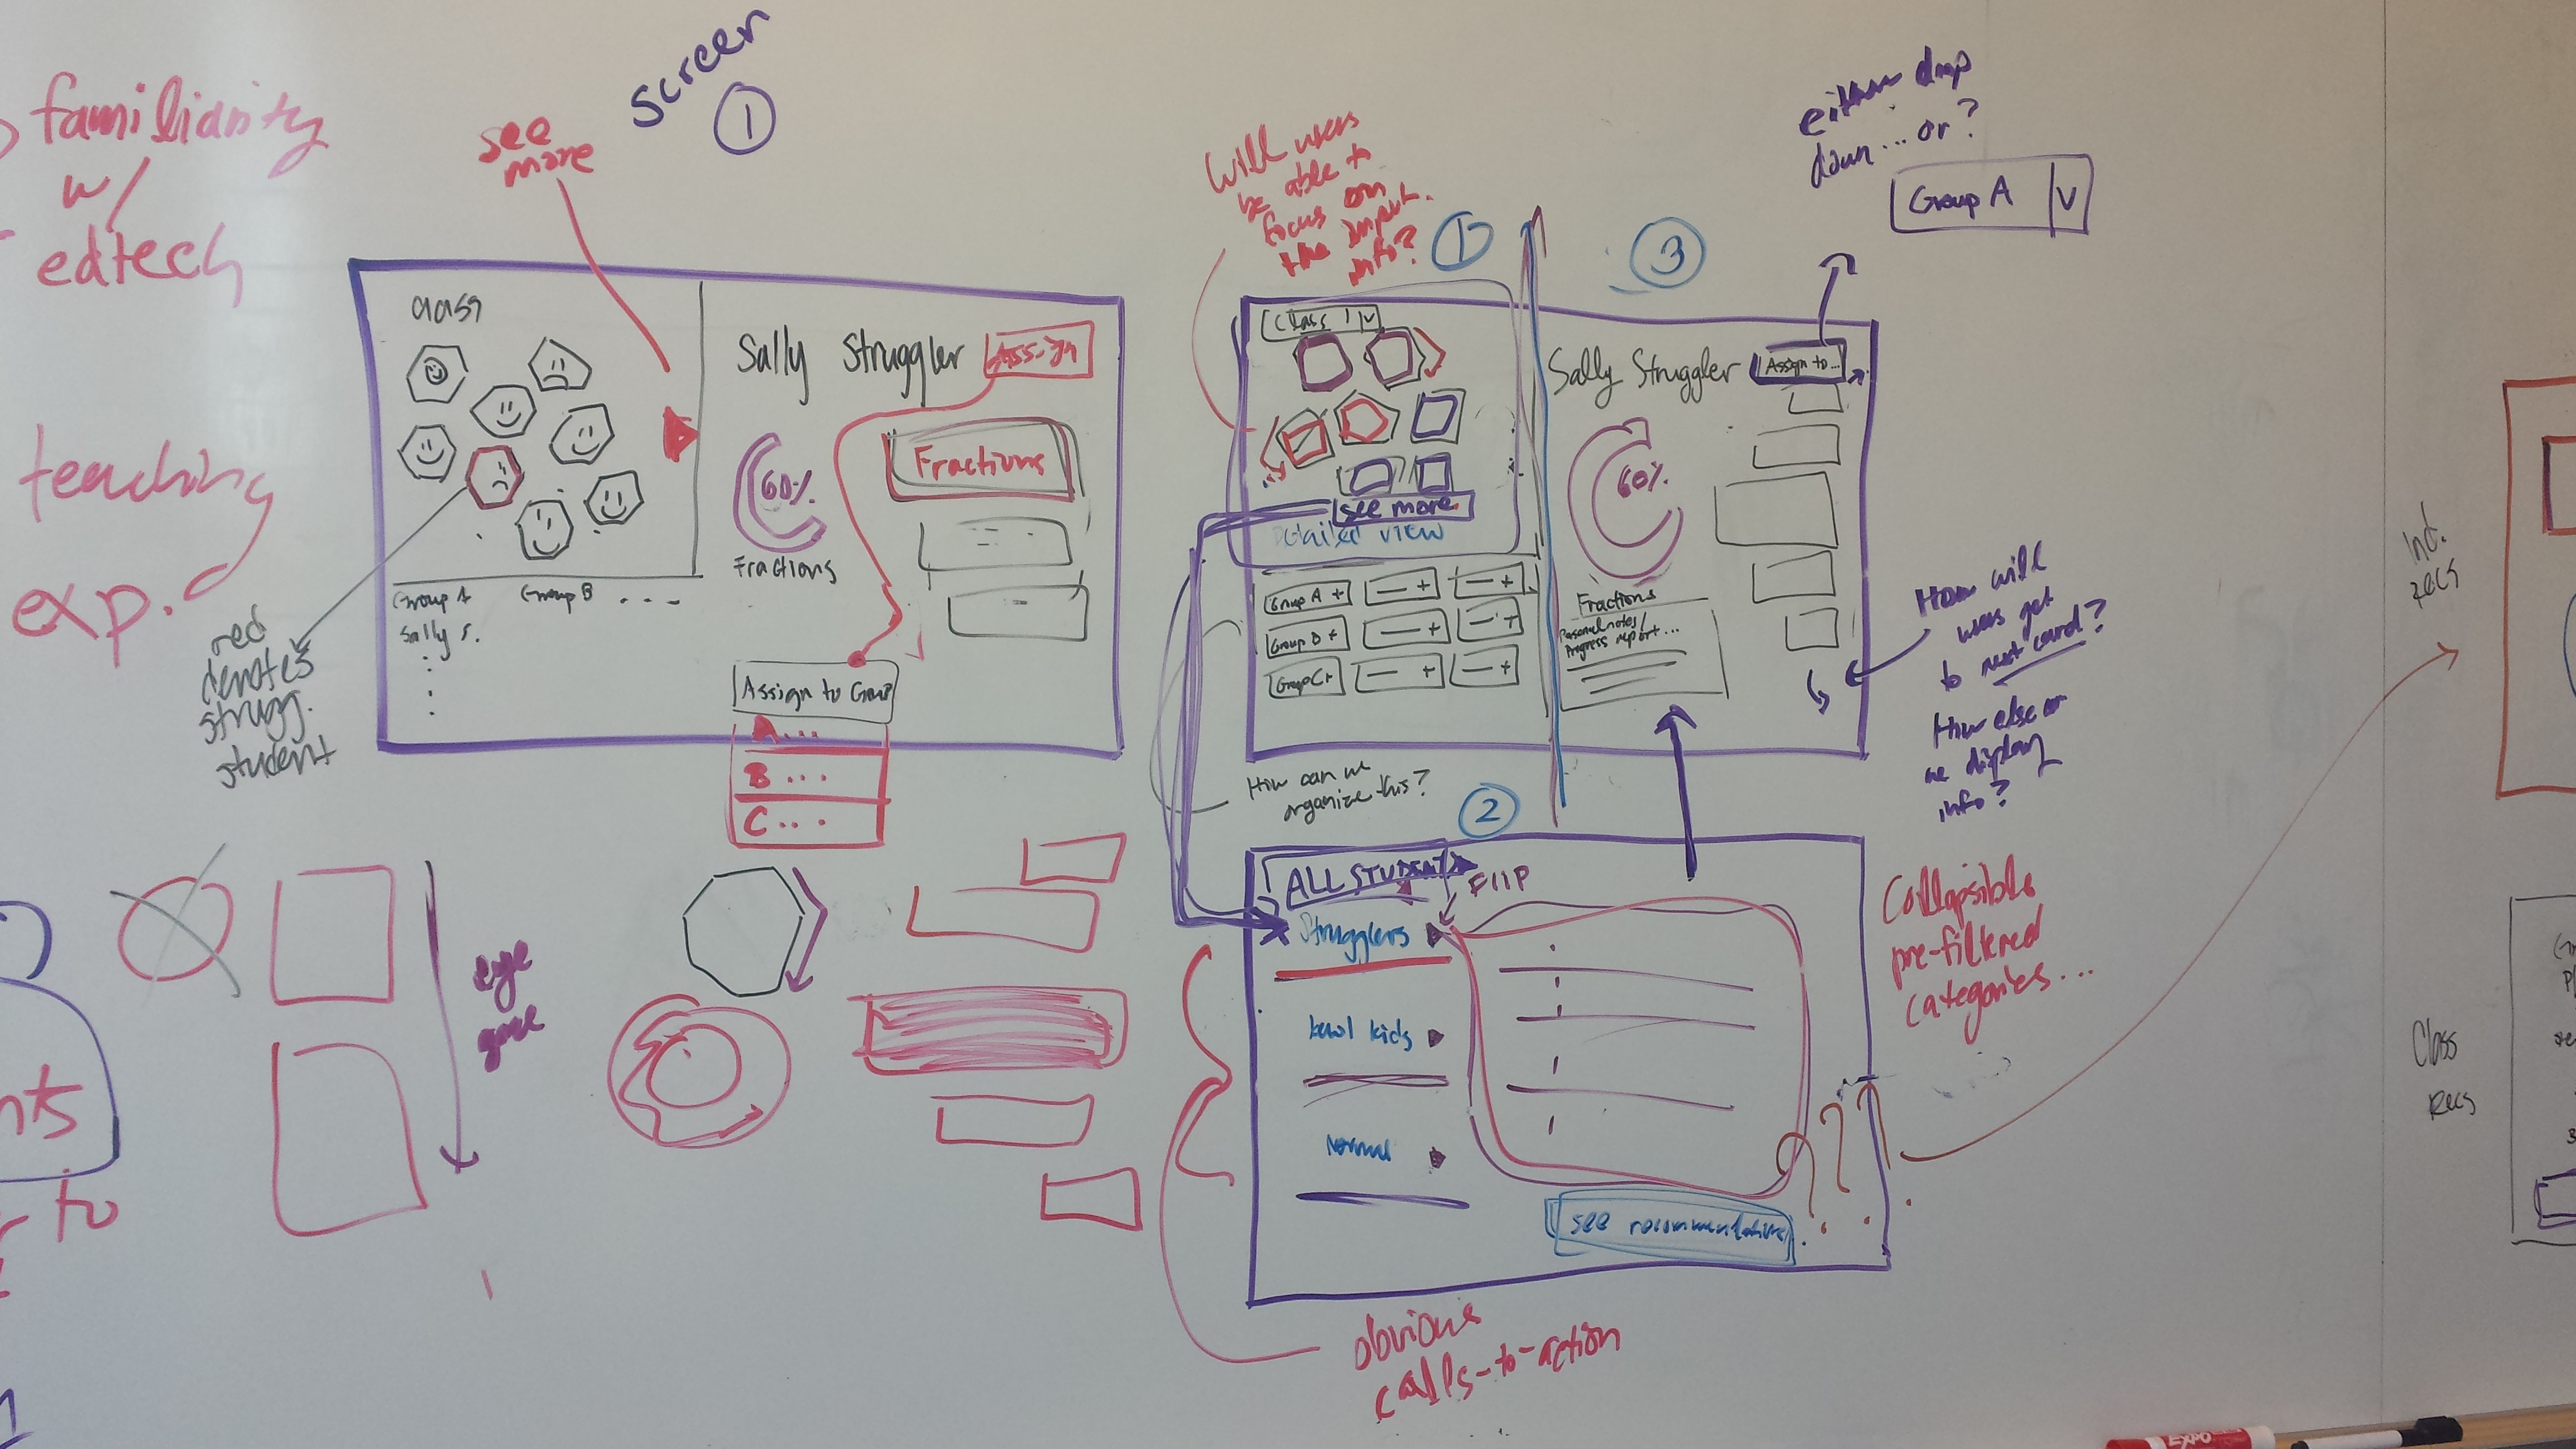 familiarity
w/
edtech
teaching
exp.
Screen
1
see
more
class
Sally Struggler
Assign
60%
Fractions
Fractions
Group A
Group B ...
Sally S.
Assign to Group
A...
B...
C...
red
denotes
strugg.
student
eye
gaze
nts
to
Will users
be able to
focus on
the import.
info?
1
Class 1 v
see more
Detailed view
Group A +
- +
- +
Group B +
- +
- +
Group C +
- +
- +
3
Sally Struggler
Assign to...
60%
Fractions
Personal notes/
Progress report...
either drop
down... or?
Group A v
How will
users get
to next card?
How else can
we display
info?
How can we
organize this?
2
ALL STUDENTS
FlIP
Strugglers
kewl kids
Normal
see recommendations
???
Collapsible
pre-filtered
categories...
obvious
calls-to-action
Ind.
recs
Class
Recs
EXPO